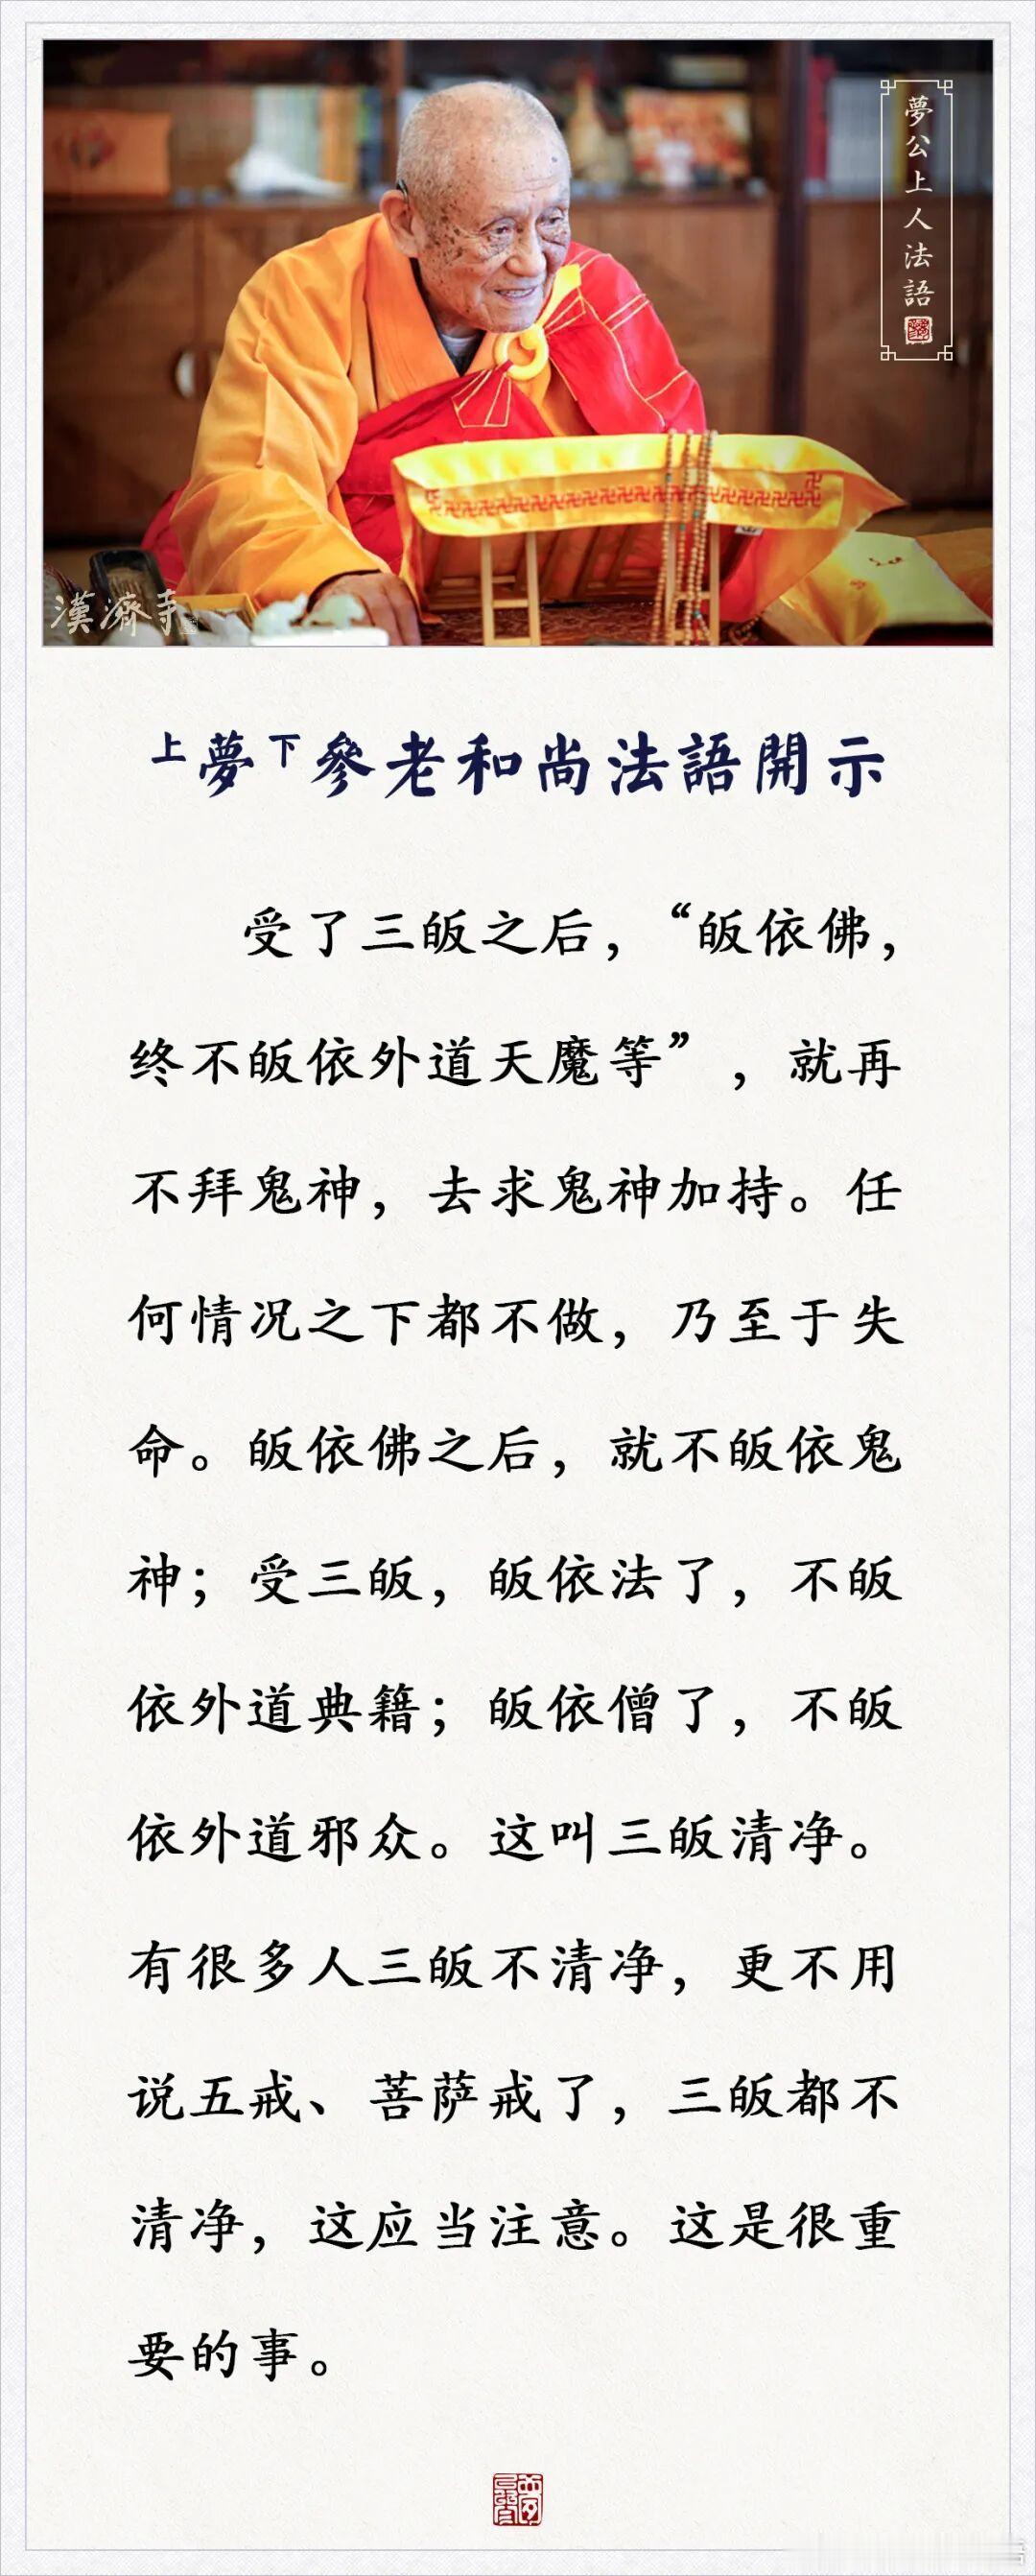 夢公上人法語
漢濟寺
上夢下參老和尚法語開示
受了三皈之后，“皈依佛，
终不皈依外道天魔等”，就再
不拜鬼神，去求鬼神加持。任
何情况之下都不做，乃至于失
命。皈依佛之后，就不皈依鬼
神；受三皈，皈依法了，不皈
依外道典籍；皈依僧了，不皈
依外道邪众。这叫三皈清净。
有很多人三皈不清净，更不用
说五戒、菩萨戒了，三皈都不
清净，这应当注意。这是很重
要的事。